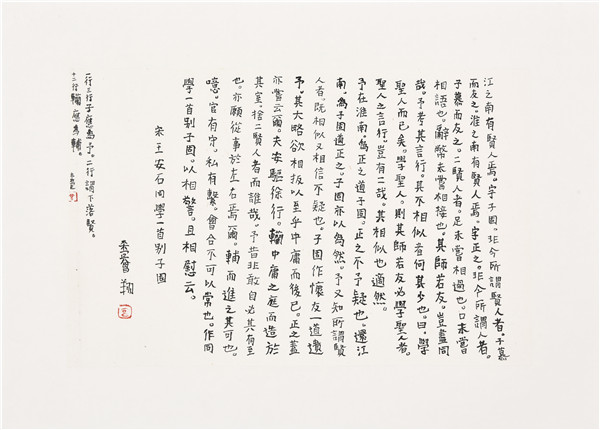 江之南有賢人焉。字子固。非今所謂賢人者。子慕
而友之。淮之南有賢人焉。字正之。非今所謂人者。
子慕而友之。二賢人者。足未嘗相過也。口未嘗
相語也。辭幣未嘗相接也。其師若友。豈盡同
哉。予考其言行。其不相似者何其少也。曰。學
聖人而已矣。學聖人。則其師若友必學聖人者。
聖人之言行。豈有二哉。其相似也適然。
予在淮南。爲正之道子固。正之不予疑也。還江
南。爲子固道正之。子固亦以爲然。予又知所謂賢
人者。既相似又相信不疑也。子固作懷友一道遺
予。其大略欲相扳以至乎中庸而後已。正之蓋
亦嘗云爾。夫安驅徐行。中庸之庭而造於
其室。捨二賢人者而誰哉。予昔非敢自必其有至
也。亦願從事於左右焉爾。輔而進之其可也。
噫。官有守。私有繫。會合不可以常也。作同
學一首別子固。以相警。且相慰云。
宋王安石同學一首別子固
翔
一行三行子應爲予。二行謂下落賢。
十二行應爲